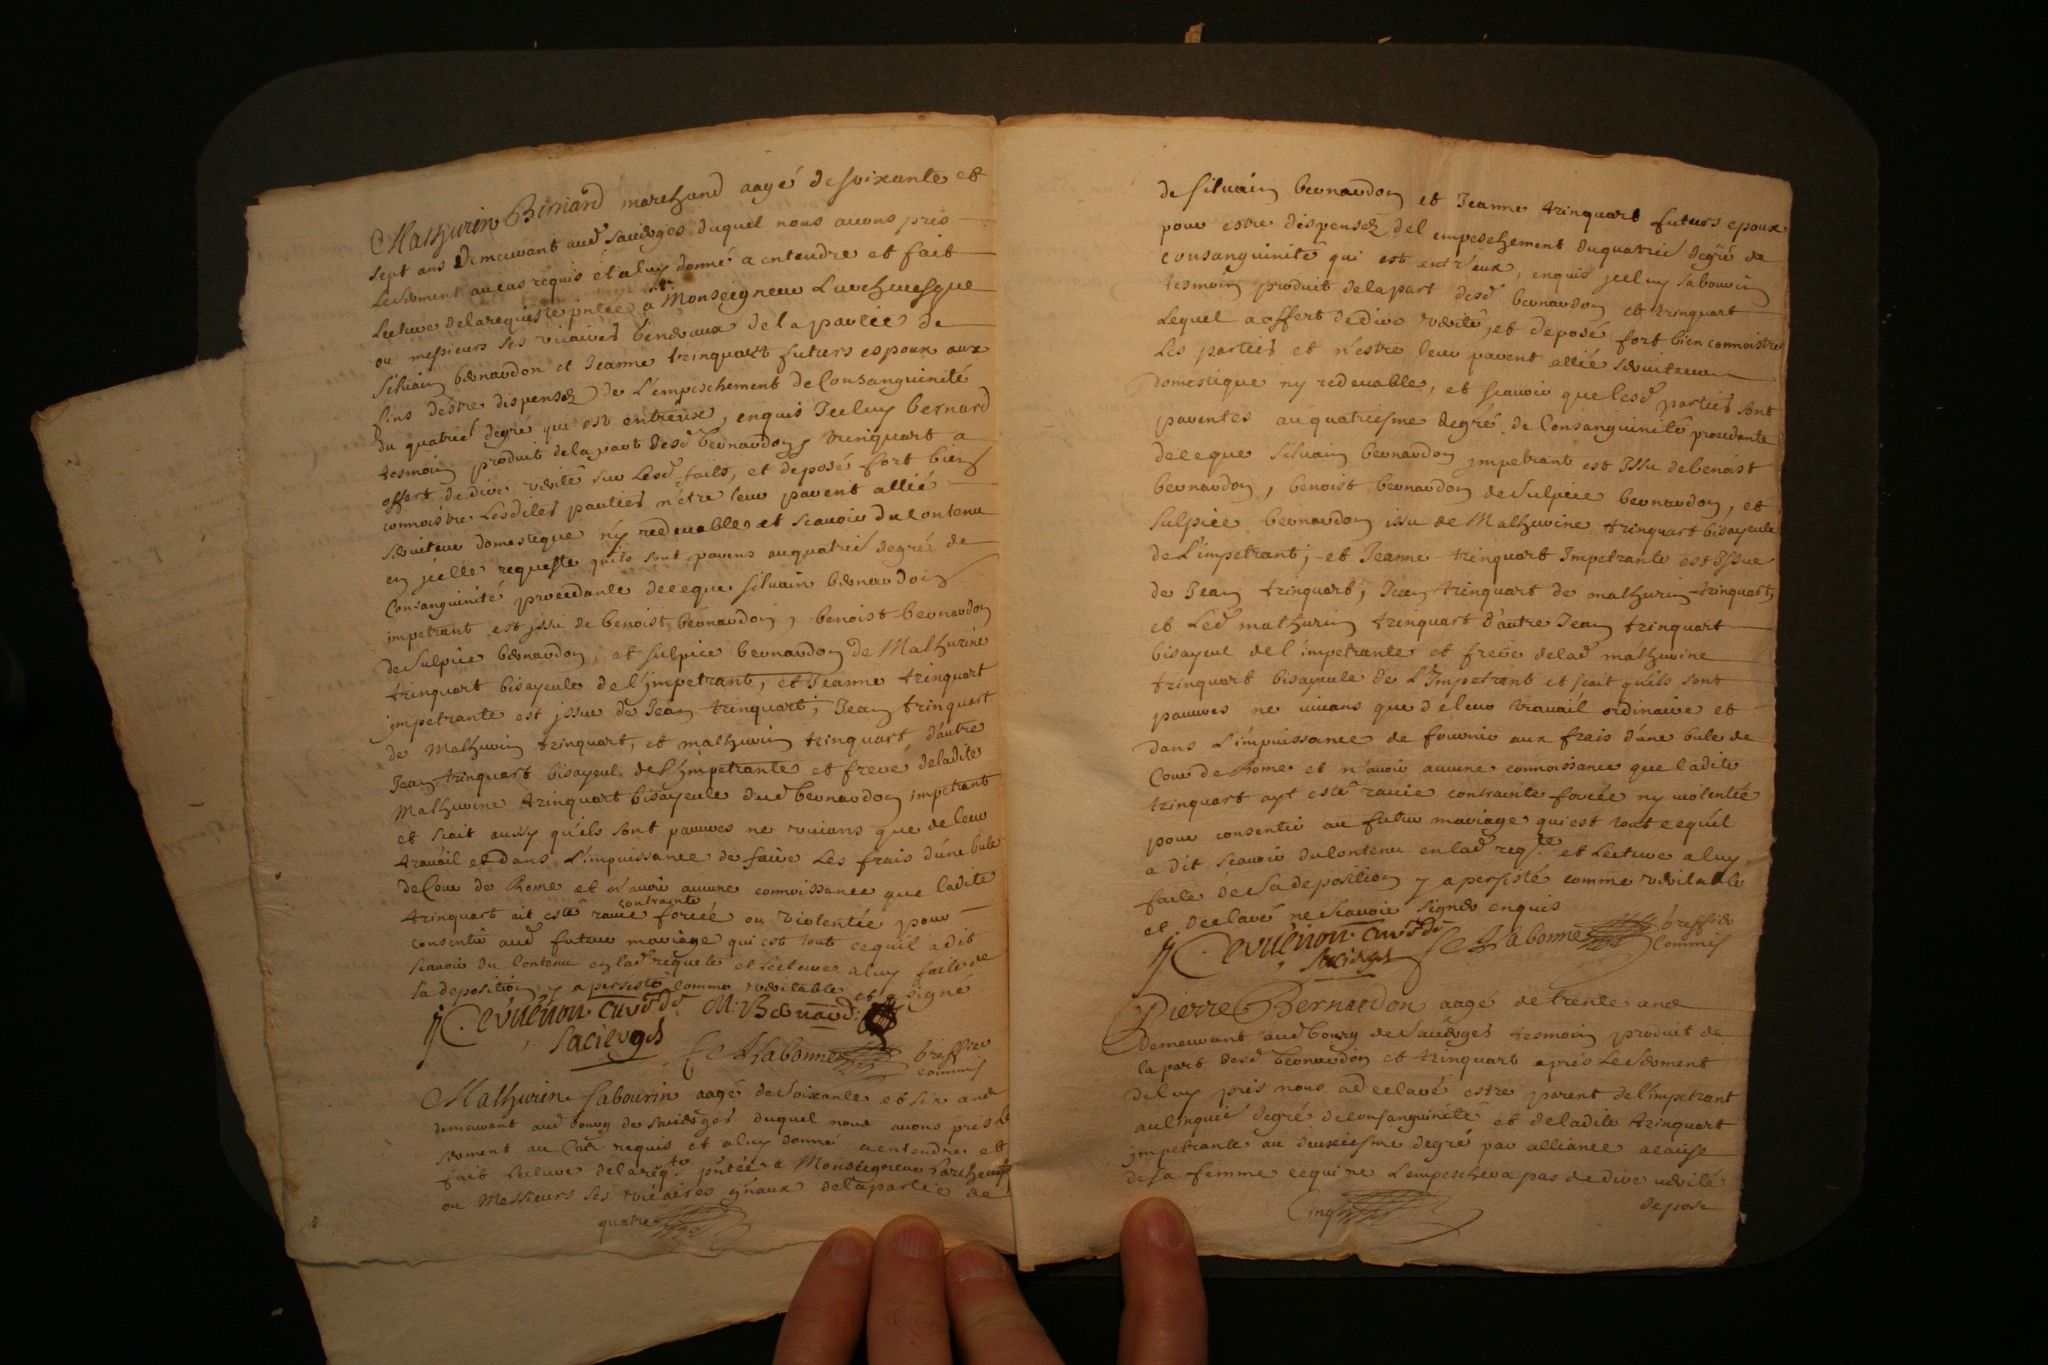 Mathurin Bernard marchand aagé de soixante et
sept ans demeurant aud Sacierges duquel nous auons pris
le serment au cas requis et a luy donné a entendre et fait
lecture de la requiste pntée a Monseigneur Larcheuesque
ou messieurs ses vicaires généraux de la partie de
Siluain bernardon et Jeanne trinquart futurs espoux aux
fins destre dispensez de L'empeschement de Consanguinité
du quatrie degré qui est entreüx, enquis Jceluy bernard
tesmoin produit de la part desd bernardon et trinquart a
offert de dire verité sur lesd faits, et deposé fort bien
connoistre Lesdites parties n'étre leur parent allié
seruiteur domestique ny redeuable et scauoir du contenu
en jcelle requeste quils sont parens au quatrie degré de
Consanguinité procedante de ce que siluain bernardon
impetrant est jssu de benoist bernardon, benoist bernardon
de Sulpice bernardon, et sulpice bernardon de Mathurine
trinquart bisayeule de l'jmpetrant, et Jeanne trinquart
jmpetrante est jssue de Jean trinquart; Jean trinquart
de Mathurin trinquart, et mathurin trinquart d'autre
Jean trinquart bisayeul de l'jmpetrante et frere de ladite
Mathurine trinquart bisayeule dud bernardon impetrant
et scait aussy qu'ils sont pauures ne viuans que de leur
trauail et dans L'impuissance de faire Les frais d'une bule
de Cour de Rome et n'auoir aucune connoissance que ladite
trinquart ait esté rauie contrainte forcée ou violentée pour
consentir aud futur mariage qui est tout ce quil a dit
scauoir du Contenu en lad requete et lecture a luy faite de
sa deposition y a persisté comme veritable et signé
C. evuenon curé de M. Bernard
Sacierges
Labonne greffier
commis
Mathurin Sabourin aagé de soixante et six ans
demeurant aud bourg de Sacierges duquel nous auons pris le
serment au Cas requis et a luy donné a entendre et
fait lecture de la reqte pntée a Monseigneur Larcheuesque
ou Messieurs ses vicaires gnaux de la partie de
quatre
de siluain bernardon et Jeanne trinquart futurs epoux
pour estre dispensez de l empeschement du quatrie degré de
consanguinité qui est entr'eux, enquis jceluy sabourin
tesmoin produit de la part desd bernardon et trinquart
Lequel a offert de dire verité, et deposé fort bien connoistre
Les parties et n'estre leur parent allié seruiteur
domestique ny redeuable, et scauoir que lesd parties sont
parentes au quatriesme degré de Consanguinité procedante
de ce que siluain bernardon jmpetrant est Jssu de benoist
bernardon, benoist bernardon de Sulpice bernardon, et
sulpice bernardon issu de Mathurine trinquart bisayeule
de L'impetrant; et Jeanne trinquart Impetrante est Jssue
de Jean trinquart; Jean trinquart de mathurin trinquart,
et Led mathurin trinquart d'autre Jean trinquart
bisayeul de l'impetrante et frere de lad mathurine
trinquart bisayeule de L'Impetrant et scait qu'ils sont
pauures ne viuans que de leur trauail ordinaire et
dans L'impuissance de fournir aux frais d'une bule de
Cour de Rome et n'auoir aucune connoissance que ladite
trinquart ayt esté rauie contrainte forcée ny violentée
pour consentir au futur mariage qui est tout ce qu'il
a dit scauoir du Contenu en lad reqte et Lecture a luy
faite de sa deposition y a persisté comme veritable
et declaré ne scauoir signer enquis
C. evuenon curé de
Sacierges
Labonne greffier
Commis
Pierre Bernardon aagé de trente ans
demeurant aud bourg de Sacierges tesmoin produit de
la part desd bernardon et trinquart aprés le serment
de luy pris nous a declaré estre parent de l'impetrant
au cinquie degré de consanguinité et de ladite trinquart
jmpetrante au deuxiesme degré par alliance a cause
de sa femme ce qui ne l'empeschera pas de dire verité
depose
Cinq